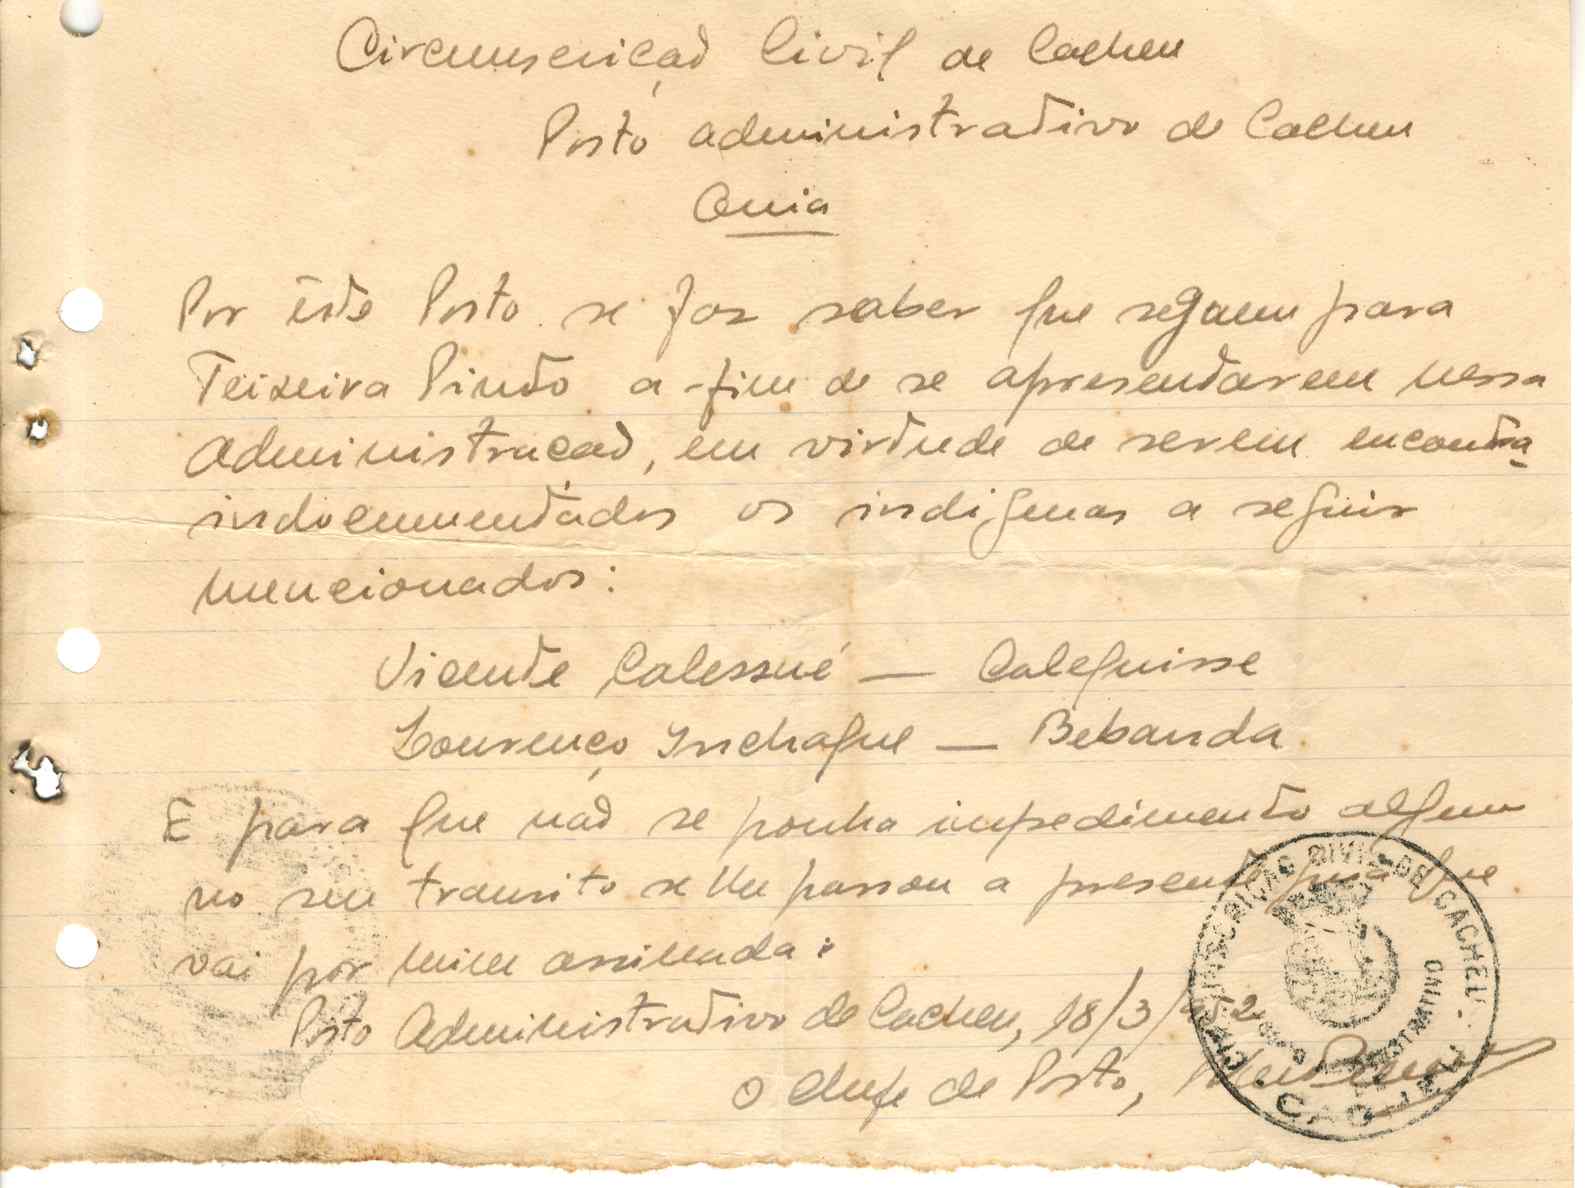 Circunscrição Civil de Cacheu
Posto administrativo de Cacheu
Guia
Por êste Posto se faz saber que seguem para
Teixeira Pinto a-fim de se apresentarem nessa
Administracão, em virtude de serem encontra-
indocumentados os indigenas a seguir
mencionados:
Vicente Calessué — Calequisse
Lourenço Inchaque — Bebanda
E para que não se ponha impedimento algum
no seu transito se lhe passou a presente guia que
vai por mim assinada:
Posto Administrativo de Cacheu, 18/3/952
O Chefe de Posto,
CIRCUNSCRIÇÃO CIVIL DE CACHEU